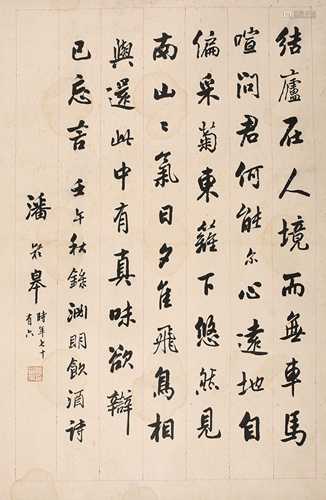 結廬在人境而無車馬
喧問君何能尔心遠地自
偏采菊東蘺下悠然見
南山々氣日夕佳飛鳥相
與還此中有真味欲辯
已忘言 壬午秋錄淵明飲酒詩
潘齡皋 時年七十
有六